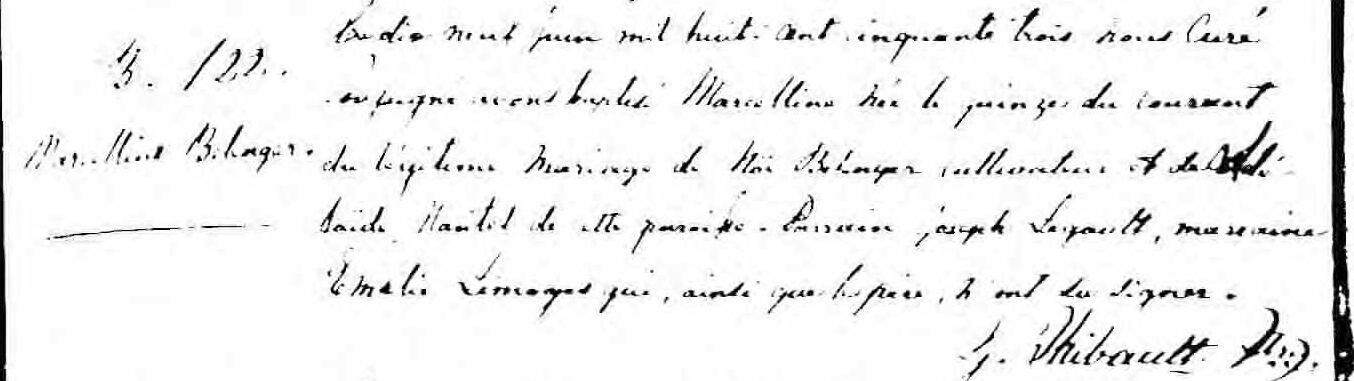 B. 122.
Marcelline Belanger.
Le dix neuf juin mil huit-cent cinquante trois nous Curé
soussigné avons baptisé Marcelline née le quinze du courant
du légitime mariage de Noé Belanger cultivateur et de Adé-
laïde Nantel de cette paroisse. Parrain joseph Legault, marraine
Emelie Limoges qui, ainsi que le père, n'ont su signer.
G. Thibault Ptre.